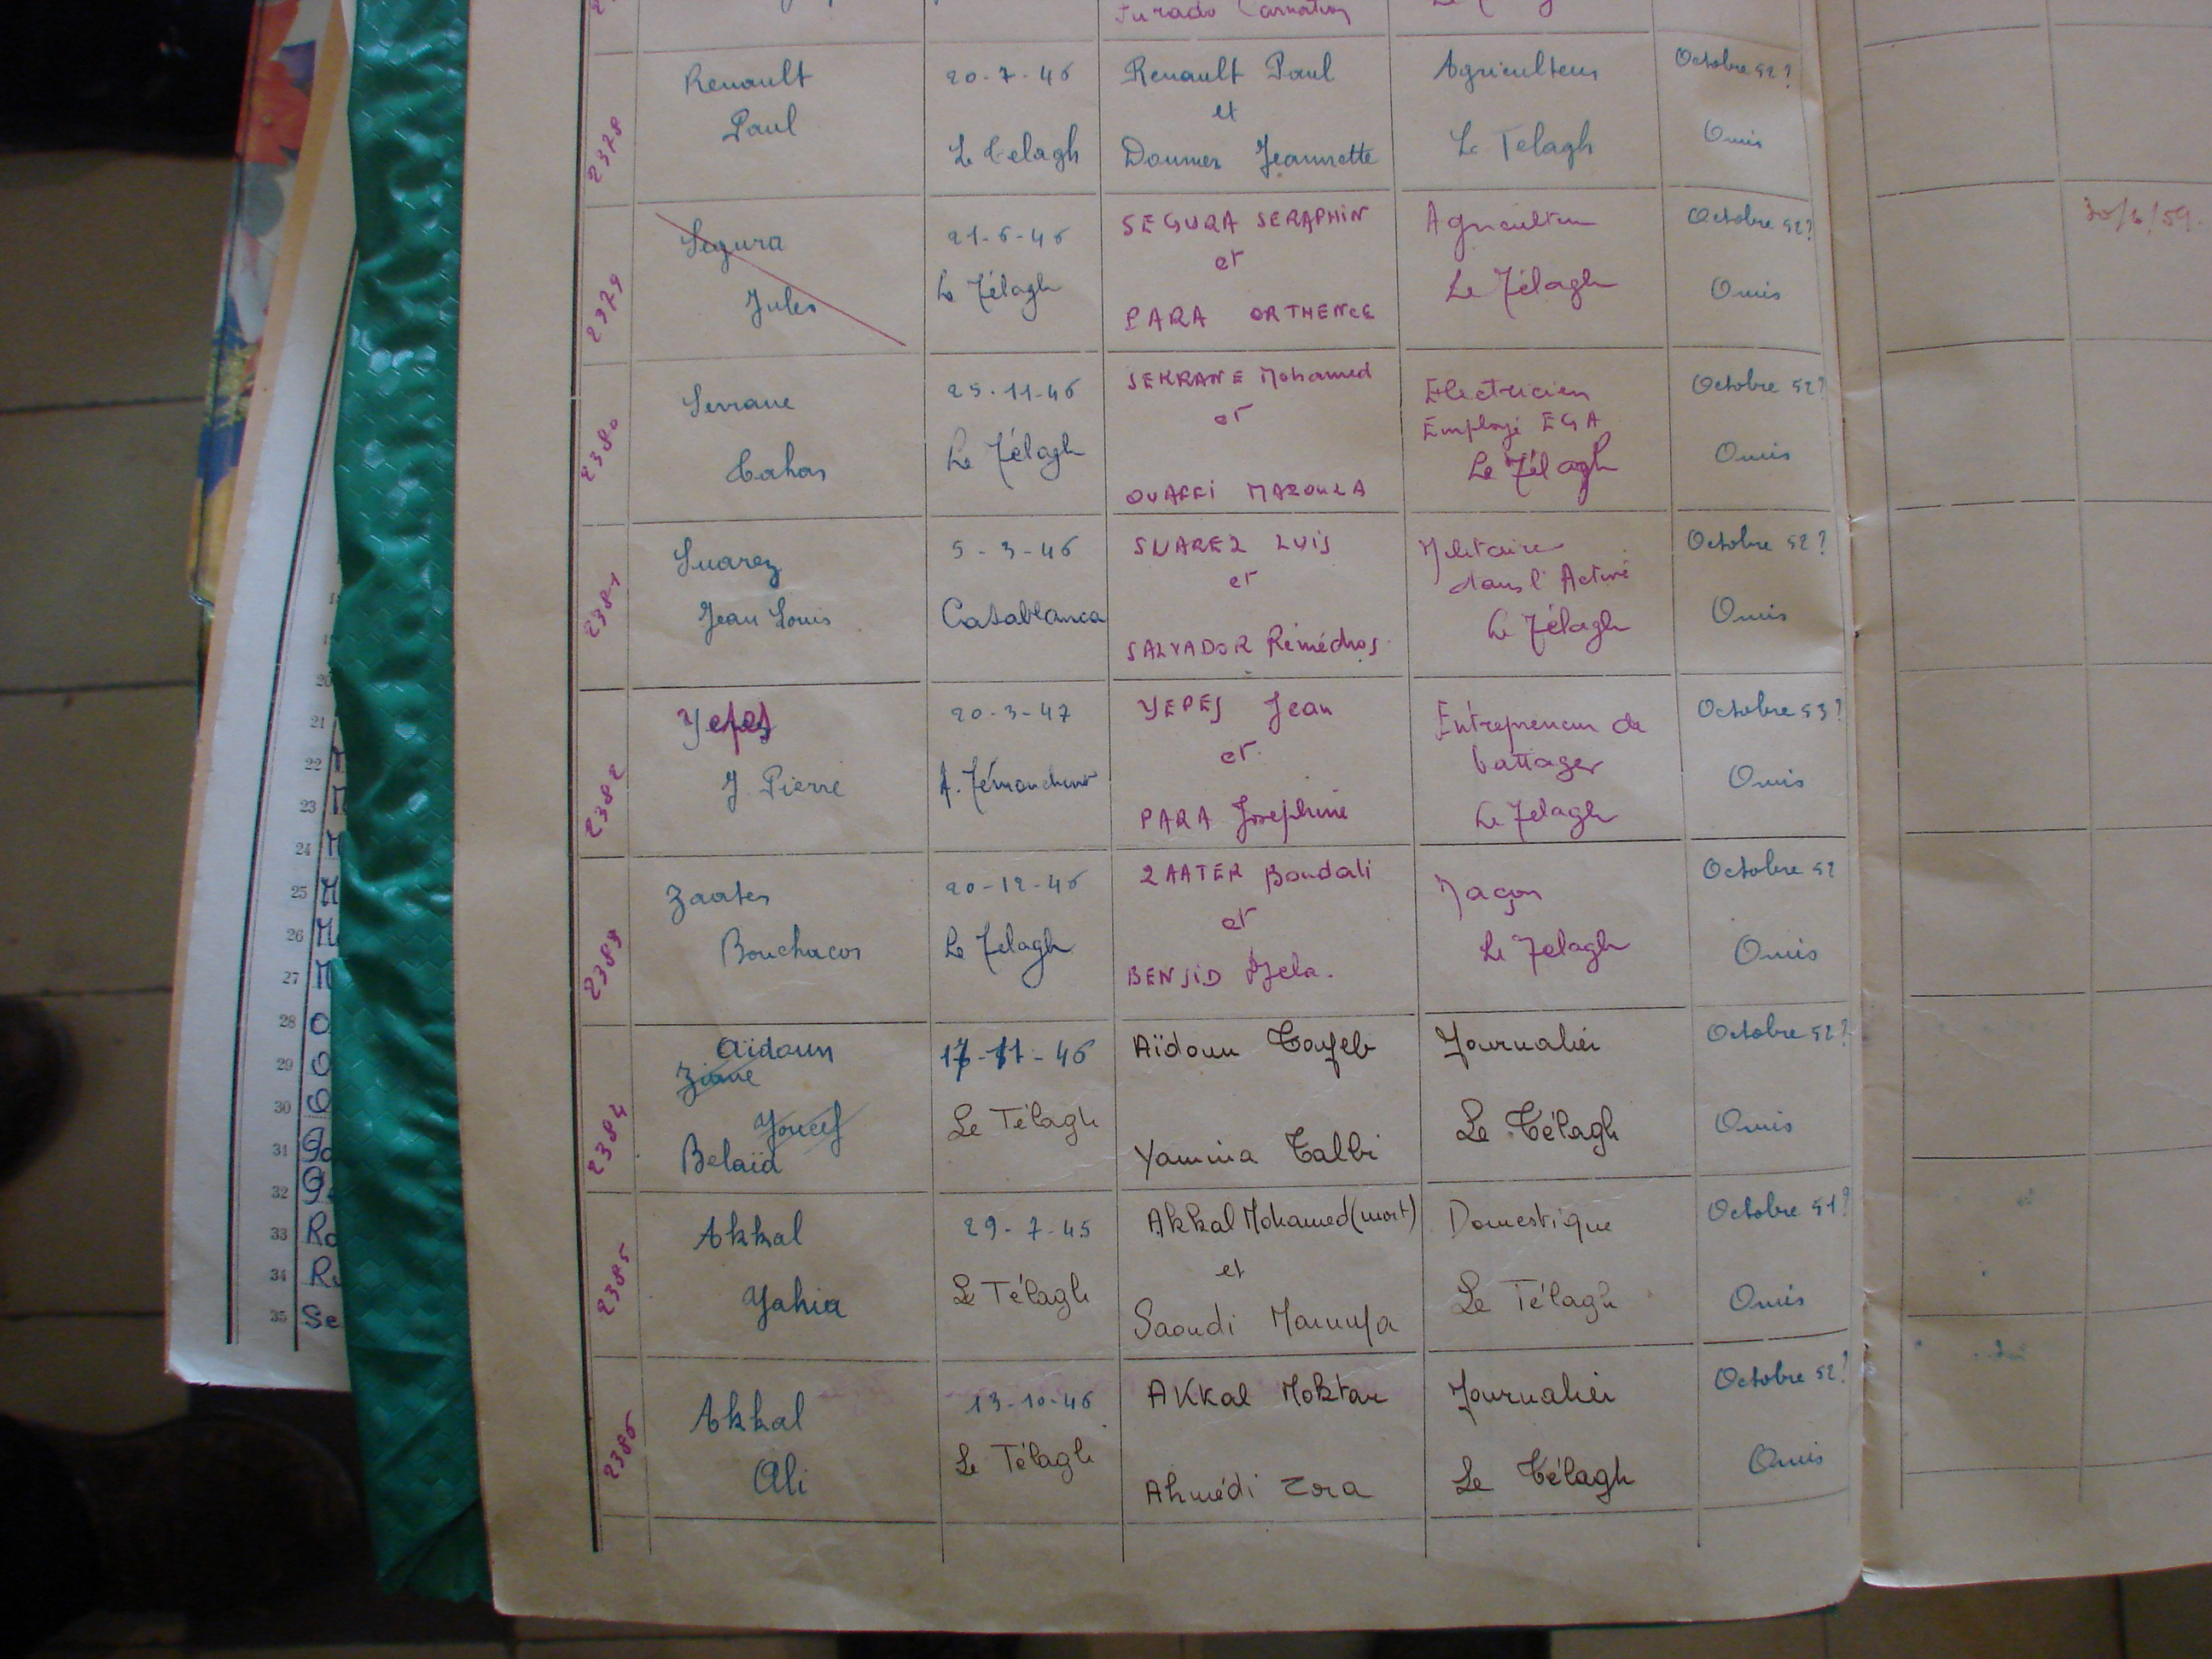 2378
Renault
Paul
20-7-46
Le Telagh
Renault Paul
et
Doumer Jeannette
Agriculteur
Le Telagh
Octobre 52?
Omis
2379
Segura
Jules
21-6-46
Le Télagh
SEGURA SERAPHIN
et
PARA ORTHENCE
Agriculteur
Le Télagh
Octobre 52?
Omis
30/6/59
2380
Serrane
Tahar
25-11-46
Le Télagh
SERRANE Mohamed
et
OUAFFI MAZOUZA
Electricien
Employé EGA
Le Télagh
Octobre 52?
Omis
2381
Suarez
Jean Louis
5-3-46
Casablanca
SUAREZ LUIS
et
SALVADOR Rémédios
Militaire
dans l'Active
Le Télagh
Octobre 52?
Omis
2382
Yepes
J. Pierre
20-3-47
A. Témouchent
YEPES Jean
et
PARA Josephine
Entrepreneur de
battages
Le Telagh
Octobre 53?
Omis
2383
Zaater
20-12-46
Le Telagh
ZAATER Boudali
et
BENSID
Maçon
Le Telagh
Octobre 52
Omis
2384
Aïdoun
Ziane
Youcef
Belaïd
17-11-46
Le Télagh
Aïdoun Tayeb
Yamina Talbi
Journalier
Le Télagh
Octobre 52?
Omis
2385
Akkal
Yahia
29-7-45
Le Télagh
Akkal Mohamed (mort)
et
Saoudi
Domestique
Le Télagh
Octobre 51?
Omis
2386
Akkal
Ali
13-10-46
Le Télagh
AKkal Moktar
Ahmédi Zora
Journalier
Le Télagh
Octobre 52?
Omis
21
22
23
24
25
26
27
28
29
30
31
32
33
34
35